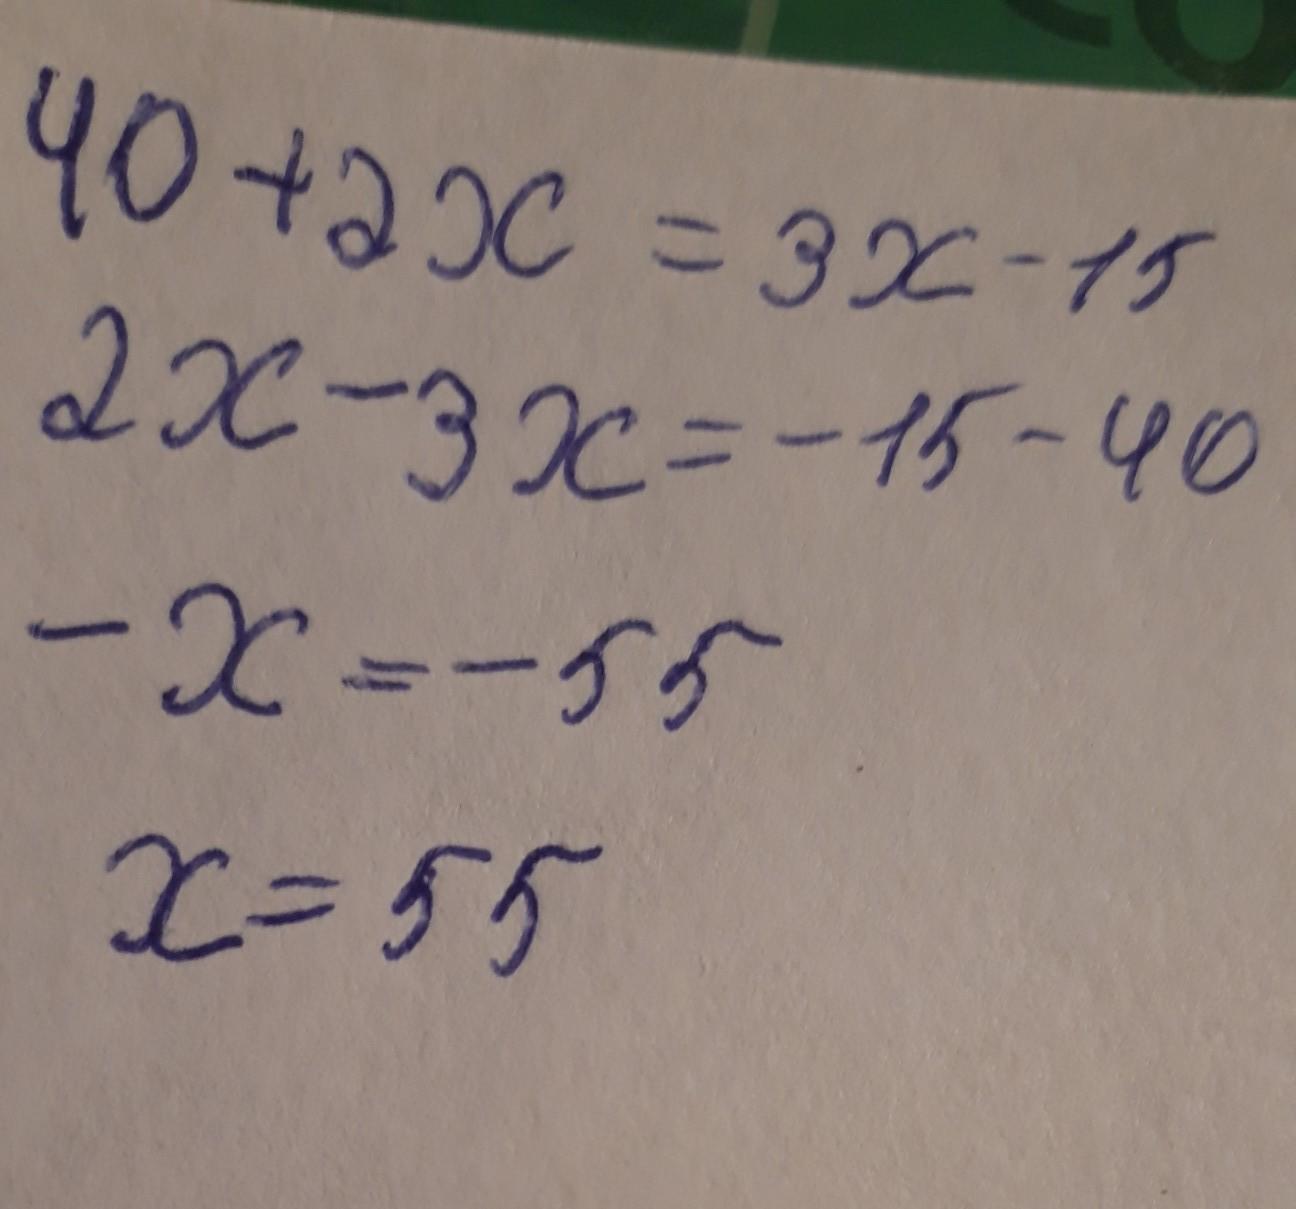 40+2x=3x-15
2x-3x=-15-40
-x=-55
x=55